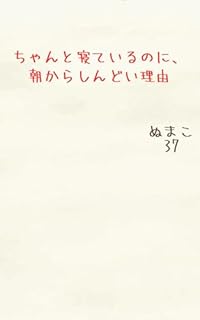 ちゃんと寝ているのに、
朝からしんどい理由
ぬまこ
37